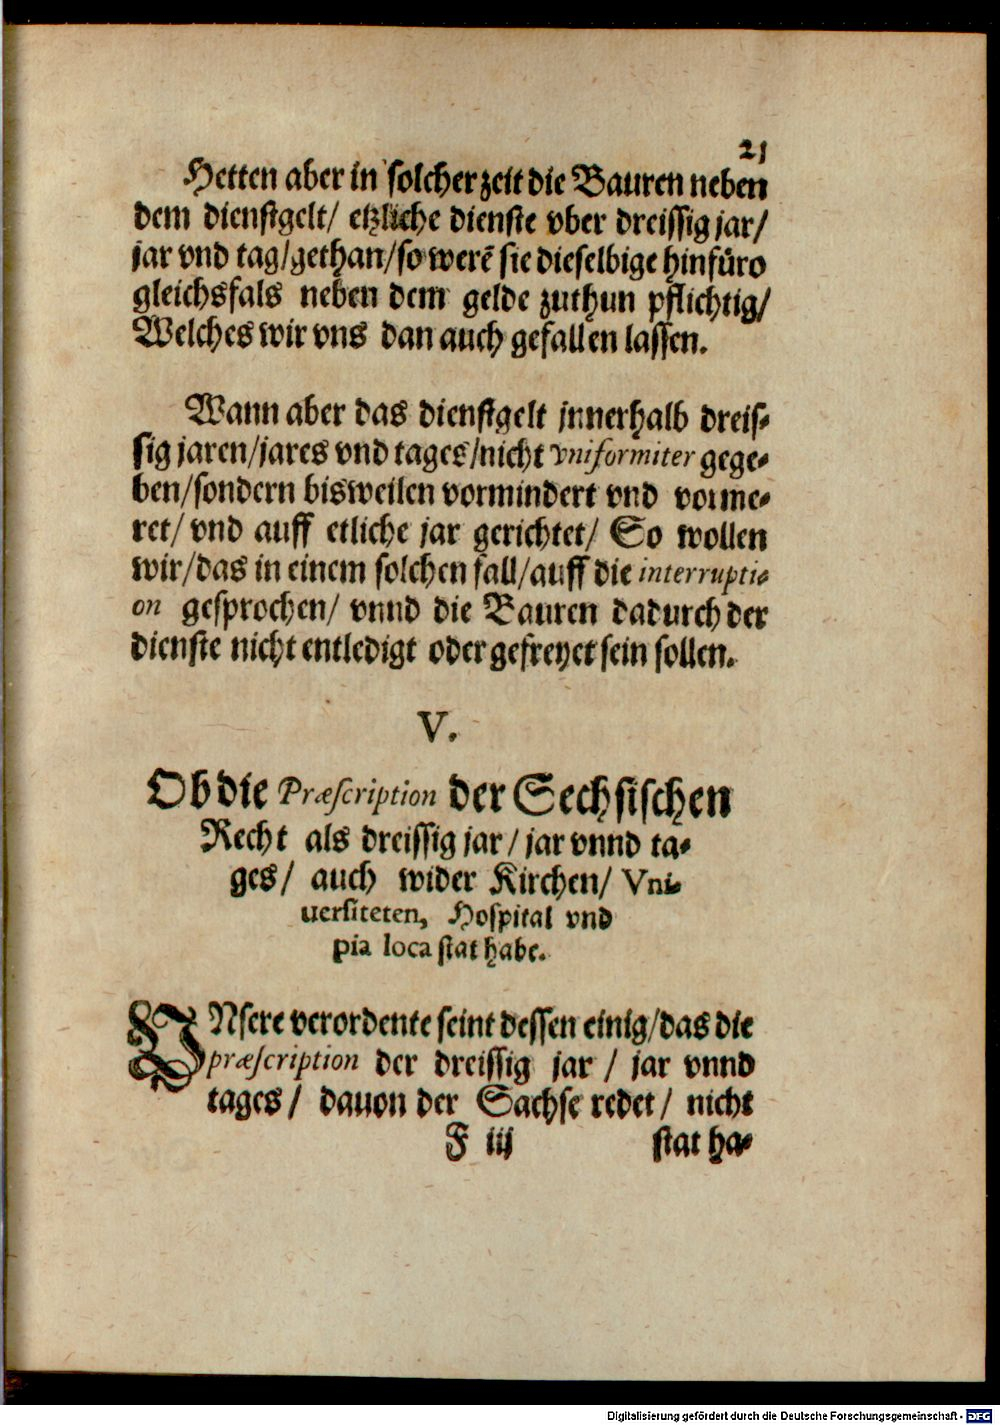 21
Hetten aber in solcher zeit die Bauren neben
dem dienstgelt/ etzliche dienste vber dreissig jar/
jar vnd tag/gethan/so werẽ sie dieselbige hinfüro
gleichsfals neben dem gelde zuthun pflichtig/
Welches wir vns dan auch gefallen lassen.
Wann aber das dienstgelt jnnerhalb dreis-
sig jaren/jares vnd tages/nicht vniformiter gege-
ben/sondern bisweilen vormindert vnd vorme-
ret/ vnd auff etliche jar gerichtet/ So wollen
wir/das in einem solchen fall/auff die interrupti-
on gesprochen/ vnnd die Bauren dadurch der
dienste nicht entledigt oder gefreyet sein sollen.
V.
Ob die Præscription der Sechsischen
Recht als dreissig jar/ jar vnnd ta-
ges/ auch wider Kirchen/ Vni-
uersiteten, Hospital vnd
pia loca stat habe.
VNsere verordente seint dessen einig/das die
præscription der dreissig jar / jar vnnd
tages/ dauon der Sachse redet/ nicht
F iij stat ha-
Digitalisierung gefördert durch die Deutsche Forschungsgemeinschaft - DFG